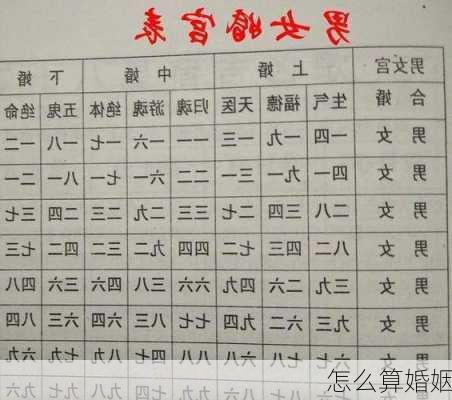 男女婚宫表
男女宫 上 婚 中 婚 下 婚
合 婚 生气 福德 天医 归魂 游魂 绝体 五鬼 绝命
男 女 一四 一九 一三 一一 一六 一七 一八 一二
男 女 四一 九一 三一 二二 六一 七一 八一 二一
男 女 二八 三四 二七 三三 二九 二三 二四 三七
男 女 八二 四三 七二 四四 九二 三二 四二 七三
男 女 三九 二六 四九 六六 三八 四六 三六 四八
男 女 九三 六二 九四 七七 八三 六四 六三 八四
男 女 六七 七八 六八 八八 四七 八九 七九 六九
怎么算婚姻